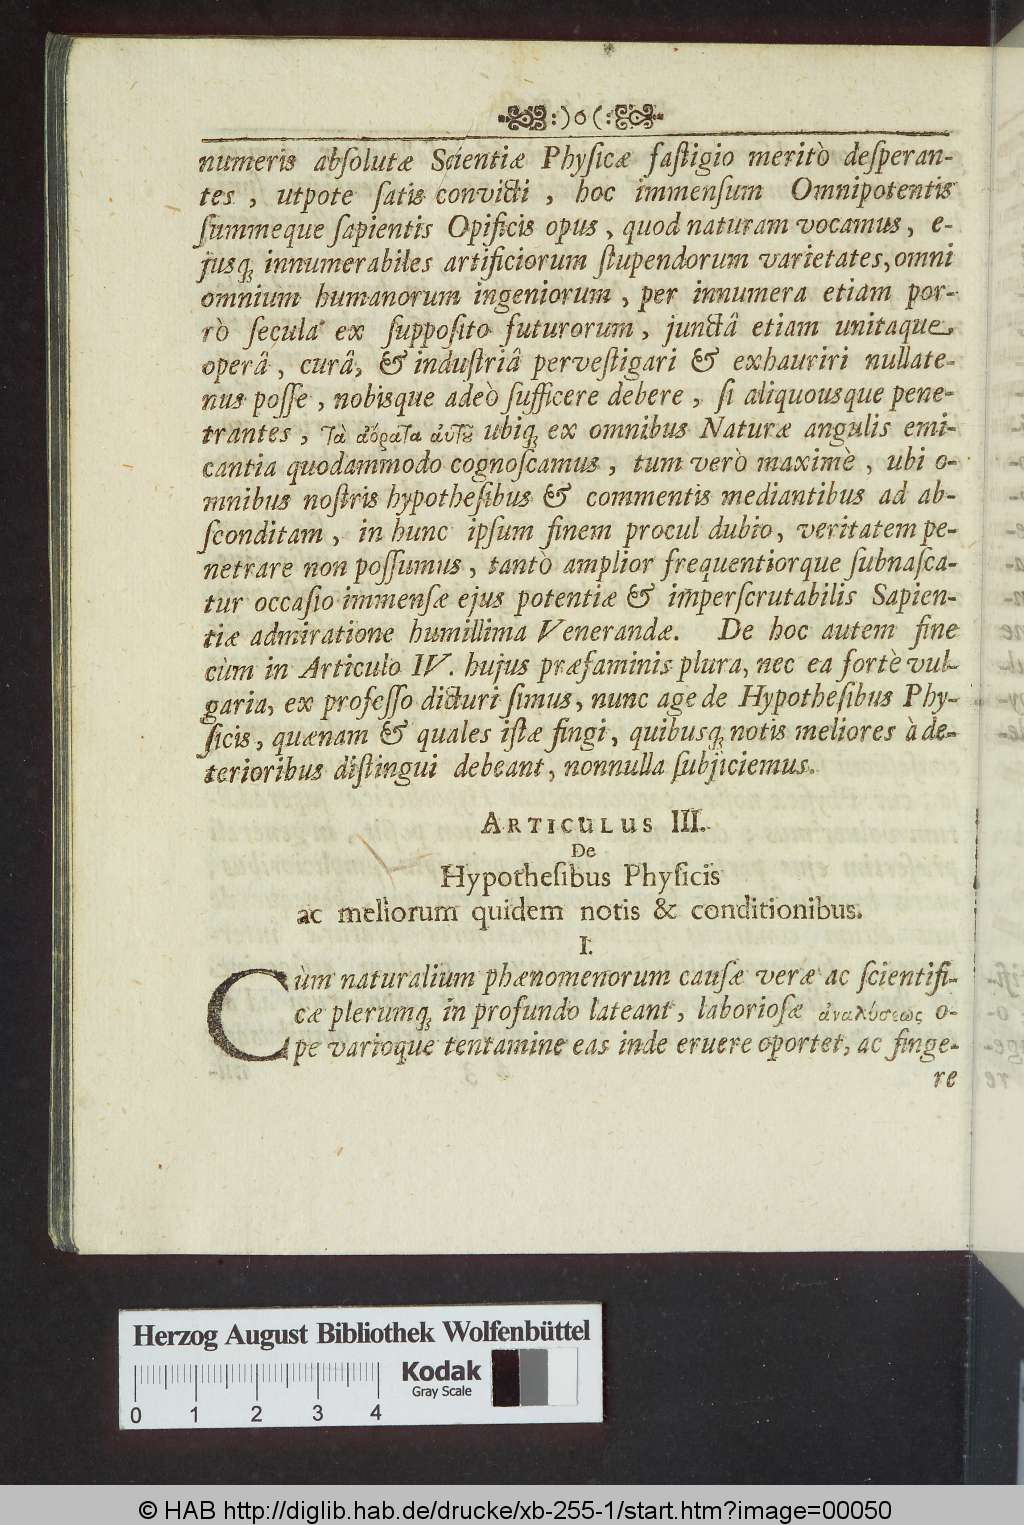 :)o(:
numeris abſolutæ Scientiæ Phyſicæ faſtigio meritò deſperan-
tes, utpote ſatis convicti, hoc immenſum Omnipotentis
ſummeque ſapientis Opificis opus, quod naturam vocamus, e-
jusq; innumerabiles artificiorum ſtupendorum varietates, omni
omnium humanorum ingeniorum, per innumera etiam por-
rò ſecula ex ſuppoſito futurorum, junctâ etiam unitaque
operâ, curâ, & induſtriâ perveſtigari & exhauriri nullate-
nus poſſe, nobisque adeò ſufficere debere, ſi aliquousque pene-
trantes, τὰ ἀόρατα ἀυτοῦ ubiq; ex omnibus Naturæ angulis emi-
cantia quodammodo cognoſcamus, tum verò maximè, ubi o-
mnibus noſtris hypotheſibus & commentis mediantibus ad ab-
ſconditam, in hunc ipſum finem procul dubio, veritatem pe-
netrare non poſſumus, tantò amplior frequentiorque ſubnaſca-
tur occaſio immenſæ ejus potentiæ & imperſcrutabilis Sapien-
tiæ admiratione humillima Venerandæ. De hoc autem fine
cùm in Articulo IV. hujus præfaminis plura, nec ea fortè vul-
garia, ex profeſſo dicturi ſimus, nunc age de Hypotheſibus Phy-
ſicis, quænam & quales iſtæ fingi, quibusq; notis meliores à de-
terioribus diſtingui debeant, nonnulla ſubjiciemus.
ARTICULUS III.
De
Hypotheſibus Phyſicis
ac meliorum quidem notis & conditionibus.
I.
Cùm naturalium phænomenorum cauſæ veræ ac ſcientifi-
cæ plerumq; in profundo lateant, laborioſæ ἀναλύσεως o-
pe varioque tentamine eas inde eruere oportet, ac finge-
re
Herzog August Bibliothek Wolfenbüttel
Kodak
Gray Scale
0 1 2 3 4
© HAB http://diglib.hab.de/drucke/xb-255-1/start.htm?image=00050